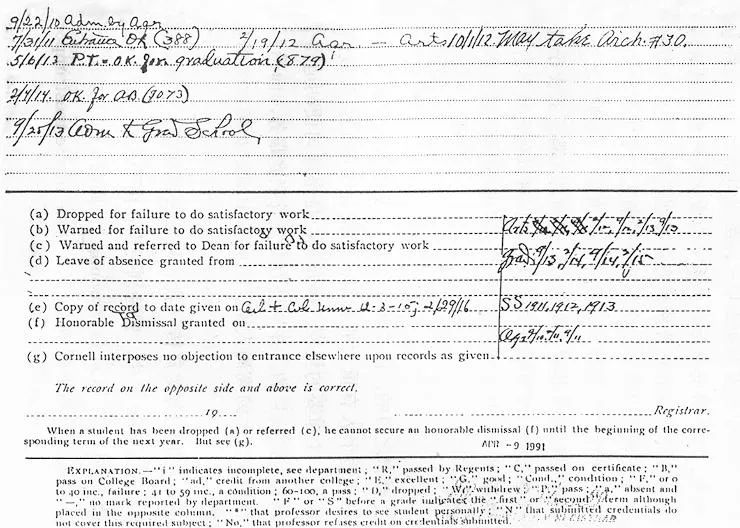 9/22/10 Adm. by Agr
7/31/11 Entrance OK (388) 2/19/12 Agr. — Arts 10/1/12 May take Arch. #30.
5/6/13 P.T. = O.K. for graduation (879)
2/4/14. OK for AB (9073)
9/25/13 Adm to Grad School
(a) Dropped for failure to do satisfactory work
(b) Warned for failure to do satisfactory work
(c) Warned and referred to Dean for failure to do satisfactory work
(d) Leave of absence granted from
Arts 9/12, 2/13 9/13
Grad: 9/13, 2/14, 9/14, 2/15
(e) Copy of record to date given on 2/29/16
SS 1911, 1912, 1913
(f) Honorable Dismissal granted on
Agr 9/10, 2/11, 9/11
(g) Cornell interposes no objection to entrance elsewhere upon records as given.
The record on the opposite side and above is correct.
19 Registrar.
When a student has been dropped (a) or referred (c), he cannot secure an honorable dismissal (f) until the beginning of the corre-
sponding term of the next year. But see (g).
APR -9 1991
EXPLANATION.—"i" indicates incomplete, see department; "R," passed by Regents; "C," passed on certificate; "B,"
pass on College Board; "ad," credit from another college; "E," excellent; "G," good; "Cond.," condition; "F," or 0
to 40 inc., failure; 41 to 59 inc., a condition; 60-100, a pass; "D," dropped; "W," withdrew; "P," pass; "a," absent and
"—," no mark reported by department. "F" or "S" before a grade indicates the "first" or "second" term although
placed in the opposite column. "*" that professor desires to see student personally; "N" that submitted credentials do
not cover this required subject; "No," that professor refuses credit on credentials submitted.